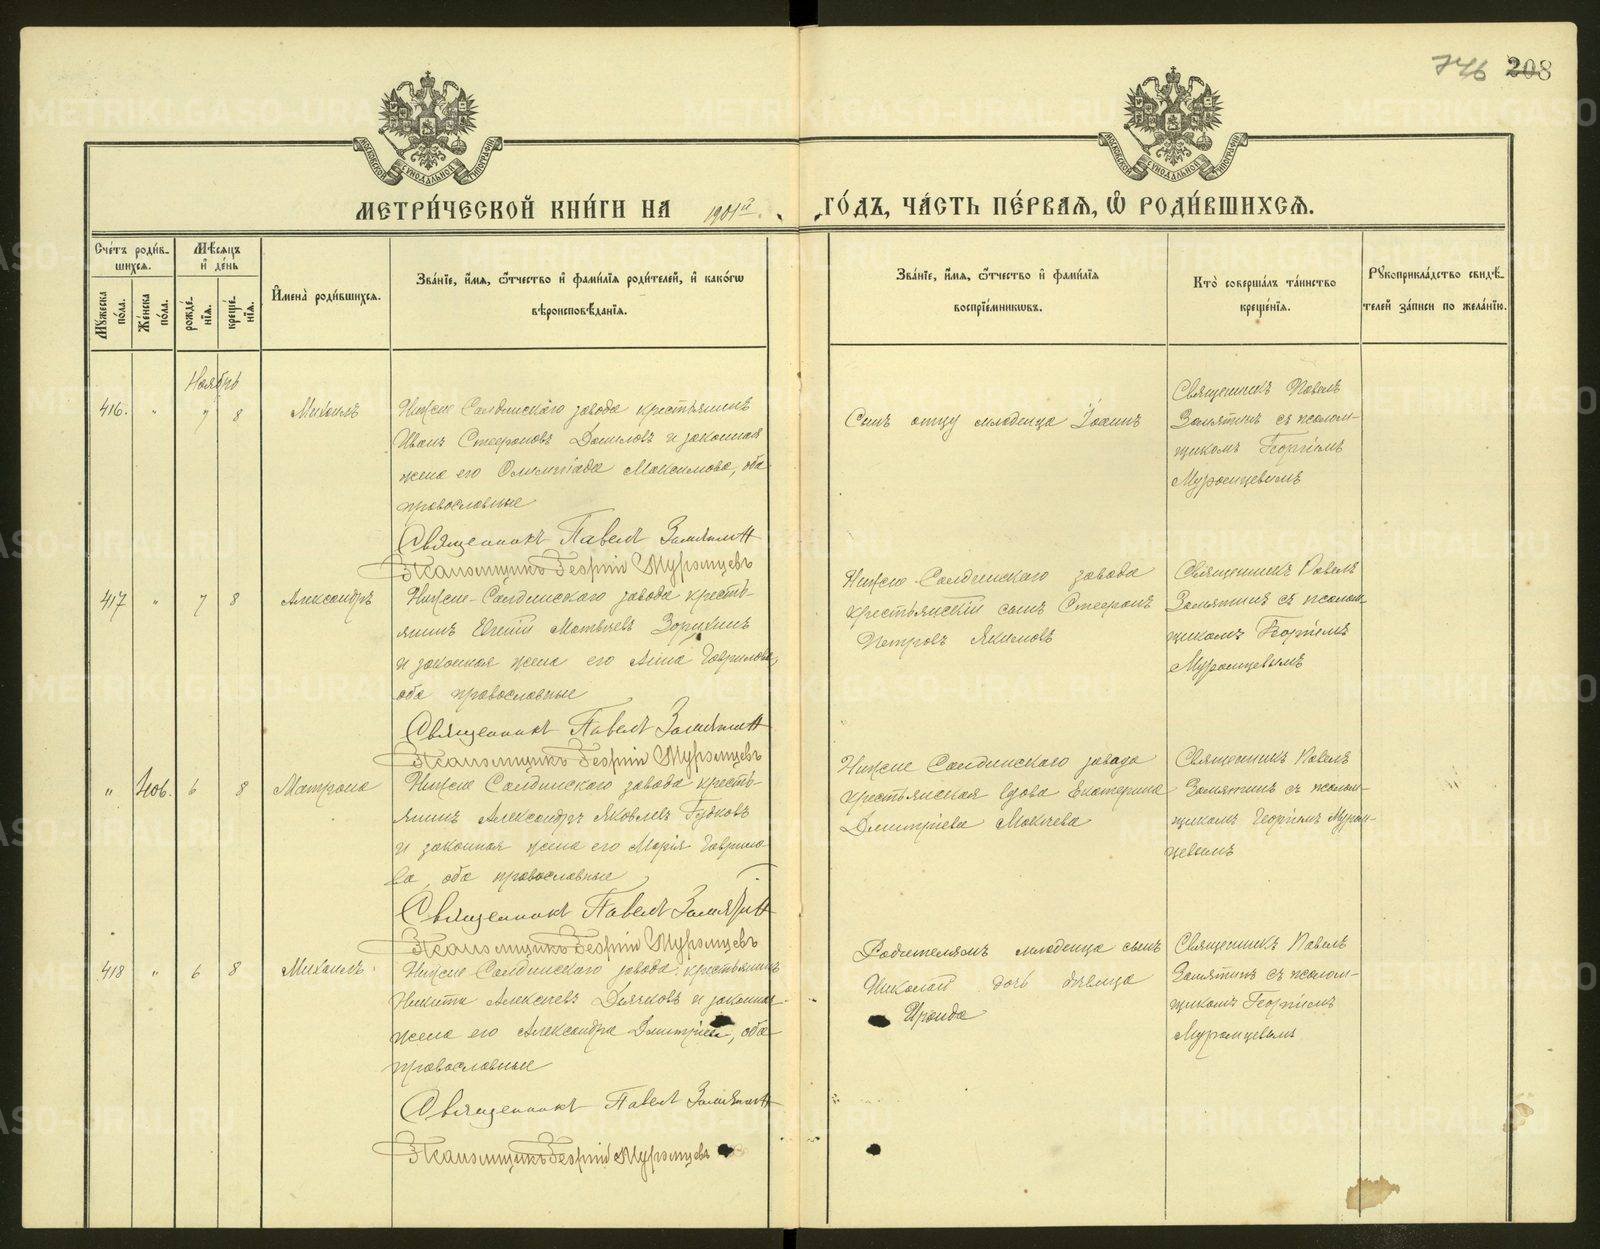 746 208
МОСКОВСКОЙ СѴНОДАЛЬНОЙ ТИПОГРАФІИ
МОСКОВСКОЙ СѴНОДАЛЬНОЙ ТИПОГРАФІИ
МЕТРИ́ЧЕСКОЙ КНИ́ГИ НА 1901й ГО́ДЪ, ЧА́СТЬ ПЕ́РВАЯ, Ѡ РОДИ́ВШИХСЯ.
Сче́тъ роди́в-
шихся.
Мѣ́сяцъ
и де́нь
Мꙋжеска по́ла.
Же́нска по́ла.
рожде́-нїя.
креще́-нїя.
И҆мена̀ роди́вшихся.
Зва́нїе, и҆́мя, ѻ҆́тчество и҆ фами́лїя роди́телей, и҆ како́гѡ
вѣроисповѣ́данїя.
Зва́нїе, и҆́мя, ѻ҆́тчество и҆ фами́лїя
воспрїе́мникѡвъ.
Кто̀ соверша́лъ та́инство
креще́нїя.
Рꙋкоприкла́дство свидѣ́-
телей за́писи по жела́нїю.
Ноябрь
416. " 7 8 Михаилъ
Нижне Салдинскаго завода крестьянинъ
Иванъ Стефановъ Даниловъ и законная
жена его Олимпіада Максимова, оба
православные
Священникъ Павелъ Замятин
Псаломщикъ Георгій Муромцевъ
Сынъ отцу младенца Іоаннъ
Священникъ Павелъ
Замятинъ съ псалом-
щикомъ Георгіемъ
Муромцевымъ
417 " 7 8 Александръ
Нижне-Салдинскаго завода кресть-
янинъ Евгеній Матвѣевъ Зорихинъ
и законная жена его Анна Гаврилова,
оба православные
Священникъ Павелъ Замятин
Псаломщикъ Георгій Муромцевъ
Нижне-Салдинскаго завода
крестьянскій сынъ Стефанъ
Петровъ Якимовъ
Священникъ Павелъ
Замятинъ съ псалом-
щикомъ Георгіемъ
Муромцевымъ
" 406. 6 8 Матрона
Нижне Салдинскаго завода кресть-
янинъ Александръ Яковлевъ Гудковъ
и законная жена его Марія Гаврило-
ва, оба православные
Священникъ Павелъ Замятин
Псаломщикъ Георгій Муромцевъ
Нижне Салдинскаго завода
крестьянская вдова Екатерина
Димитріева Мокѣева
Священникъ Павелъ
Замятинъ съ псалом-
щикомъ Георгіемъ Муром-
цевымъ
418 " 6 8 Михаилъ
Нижне-Салдинскаго завода крестьянинъ
Никита Алексѣевъ Дьячковъ и законная
жена его Александра Димитріева, оба
православные
Священникъ Павелъ Замятин
Псаломщикъ Георгій Муромцевъ
Родителямъ младенца сынъ
Николай дочь дѣвица
Ираида
Священникъ Павелъ
Замятинъ съ псалом-
щикомъ Георгіемъ
Муромцевымъ
METRIKI.GASO-URAL.RU